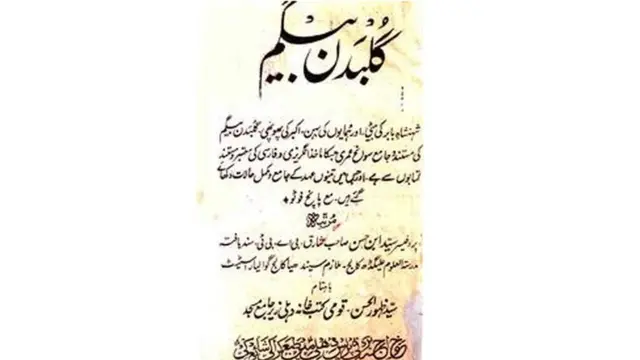 گلبدن بیگم
شہنشاہ بابر کی بیٹی۔ اور ہمایوں کی بہن۔ اکبر کی پھوپھی۔ گلبدن بیگم
کی مستند و جامع سوانح عمری جسکا ماخذ انگریزی و فارسی کی معتبر و مستند
کتابوں سے ہے۔ اور جس میں تینوں عہد کے جامع و مکمل حالات دکھائے
گئے ہیں۔ مع پانچ فوٹو
مرتبہ
پروفیسر سید ابن حسن صاحب شارق، بی، اے، بی، ٹی، سند یافتہ
مدرسۃ العلوم علیگڈھ کالج۔ ملازم سیندھیا کالج گوالیار سٹیٹ
باہتمام
سید ظہور الحسن۔ قومی کتب خانہ دہلی زیر جامع مسجد